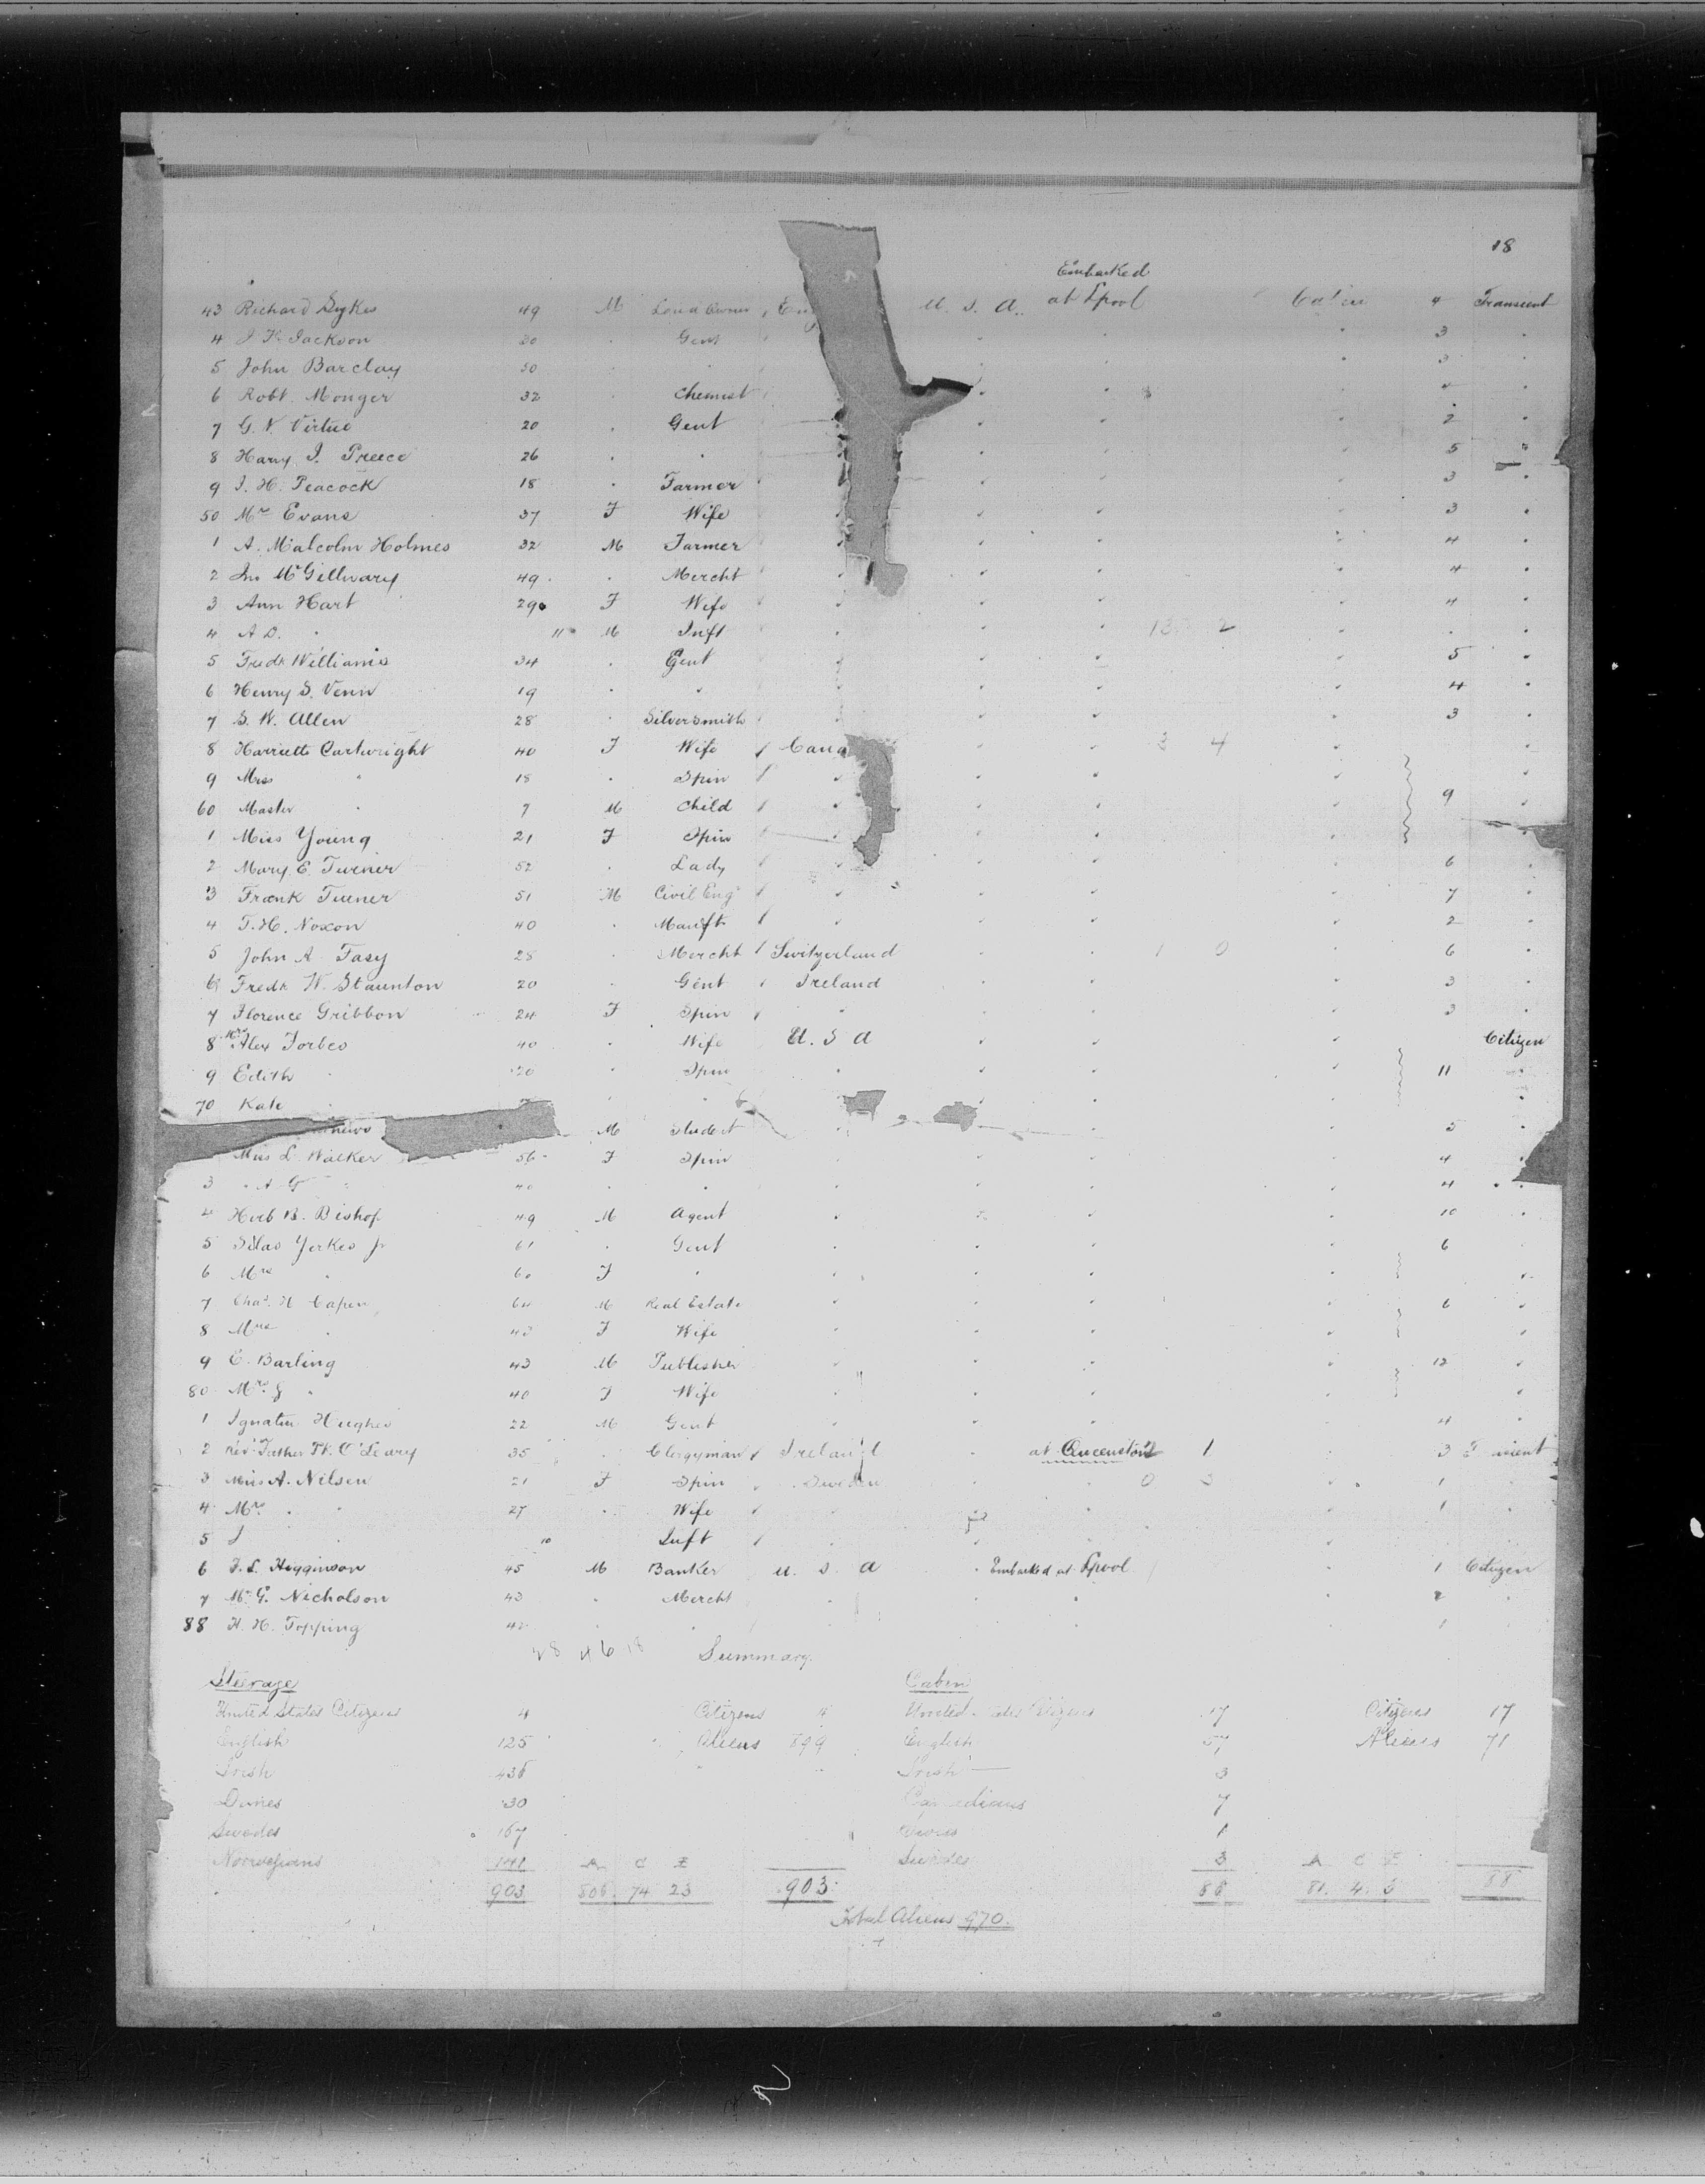 18
Embarked
43 Richard Sykes 49 M Land Owner Eng U. S. A. at Lpool Cabin 4 Transient
4 J. H. Jackson 30 " Gent " " " 3 "
5 John Barclay 50 " " " " 3 "
6 Robt. Monger 32 " Chemist " " " 4 "
7 G. V. Virtue 20 " Gent " " " 2 "
8 Harry J. Preece 26 " " " " " 5 "
9 J. H. Peacock 18 " Farmer " " " 3 "
50 Mrs Evans 37 F Wife " " " 3 "
1 A. Malcolm Holmes 32 M Farmer " " " 4 "
2 Jno McGillivary 49 " Mercht " " " " 4 "
3 Ann Hart 29 F Wife " " " " 4 "
4 A D. " 11 M Inft " " " 13 2 " " "
5 Fredk Williams 34 " Gent " " " " 5 "
6 Henry S. Venn 19 " " " " " " 4 "
7 S. W. Allen 28 " Silversmith " " " " 3 "
8 Harriette Cartwright 40 F Wife Cana " " 3 4 " "
9 Miss " 18 " Spin " " " " "
60 Master " 7 M Child " " " " 9 "
1 Miss Young 21 F Spin " " " "
2 Mary E. Turner 52 " Lady " " " " 6 "
3 Frank Turner 51 M Civil Engr " " " " 7 "
4 T. H. Noxon 40 " Manftr " " " " 2 "
5 John A Fasy 28 " Mercht Switzerland " " 1 0 " 6 "
6 Fredk W. Staunton 20 " Gent Ireland " " " 3 "
7 Florence Gribbon 24 F Spin " " " " 3 "
8 Mrs Alex Forbes 40 " Wife U. S A " " " Citizen
9 Edith " 20 " Spin " " " " 11 "
70 Kate " " " " " " " "
M Student " " " 5 "
Miss L. Walker 56 F Spin " " " " 4 "
3 " A G " 40 " " " " " " 4 "
4 Herb B. Bishop 49 M Agent " " " " 10 "
5 Silas Yerkes Jr 61 " Gent " " " " 6 "
6 Mrs " 60 F " " " " " "
7 Chas. H Capen 64 M Real Estate " " " " 6 "
8 Mrs " 43 F Wife " " " " "
9 E. Barling 43 M Publisher " " " " 12 "
80 Mrs. G " 40 F Wife " " " " "
1 Ignatius Hughes 22 M Gent " " " " 4 "
2 Revd Father O'Leary 35 " Clergyman Ireland " at Queenstown 1 " 3 T sient
3 Miss A. Nilsen 21 F Spin Sweden " " 0 3 " 1 "
4 Mrs " " 27 " Wife " " " " 1 "
5 J " 10 Inft " " " "
6 F. L. Higginson 45 M Banker U. S. A " Embarked at Lpool " 1 Citizen
7 Mr G. Nicholson 43 " Mercht " " " " 2 "
88 H. H. Topping 42 " " " " " " 1 "
Summary
Steerage Cabin
United States Citizens 4 Citizens 4 United States Citizens 17 Citizens 17
English 125 Aliens 899 English 57 Aliens 71
Irish 436 Irish 3
Danes 30 Canadians 7
Swedes 167 Swiss 1
Norwegians 141 A C I Swedes 3 A C I
903 806 74 23 903 88 81. 4. 3 88
Total Aliens 970.